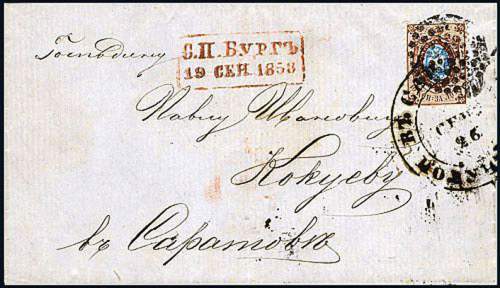 Господину
С.П.БУРГЪ
19 СЕН.1858
Павлу Ивановичу
Кокуеву
въ Саратовѣ
СЕН
26
ПОЛУЧ